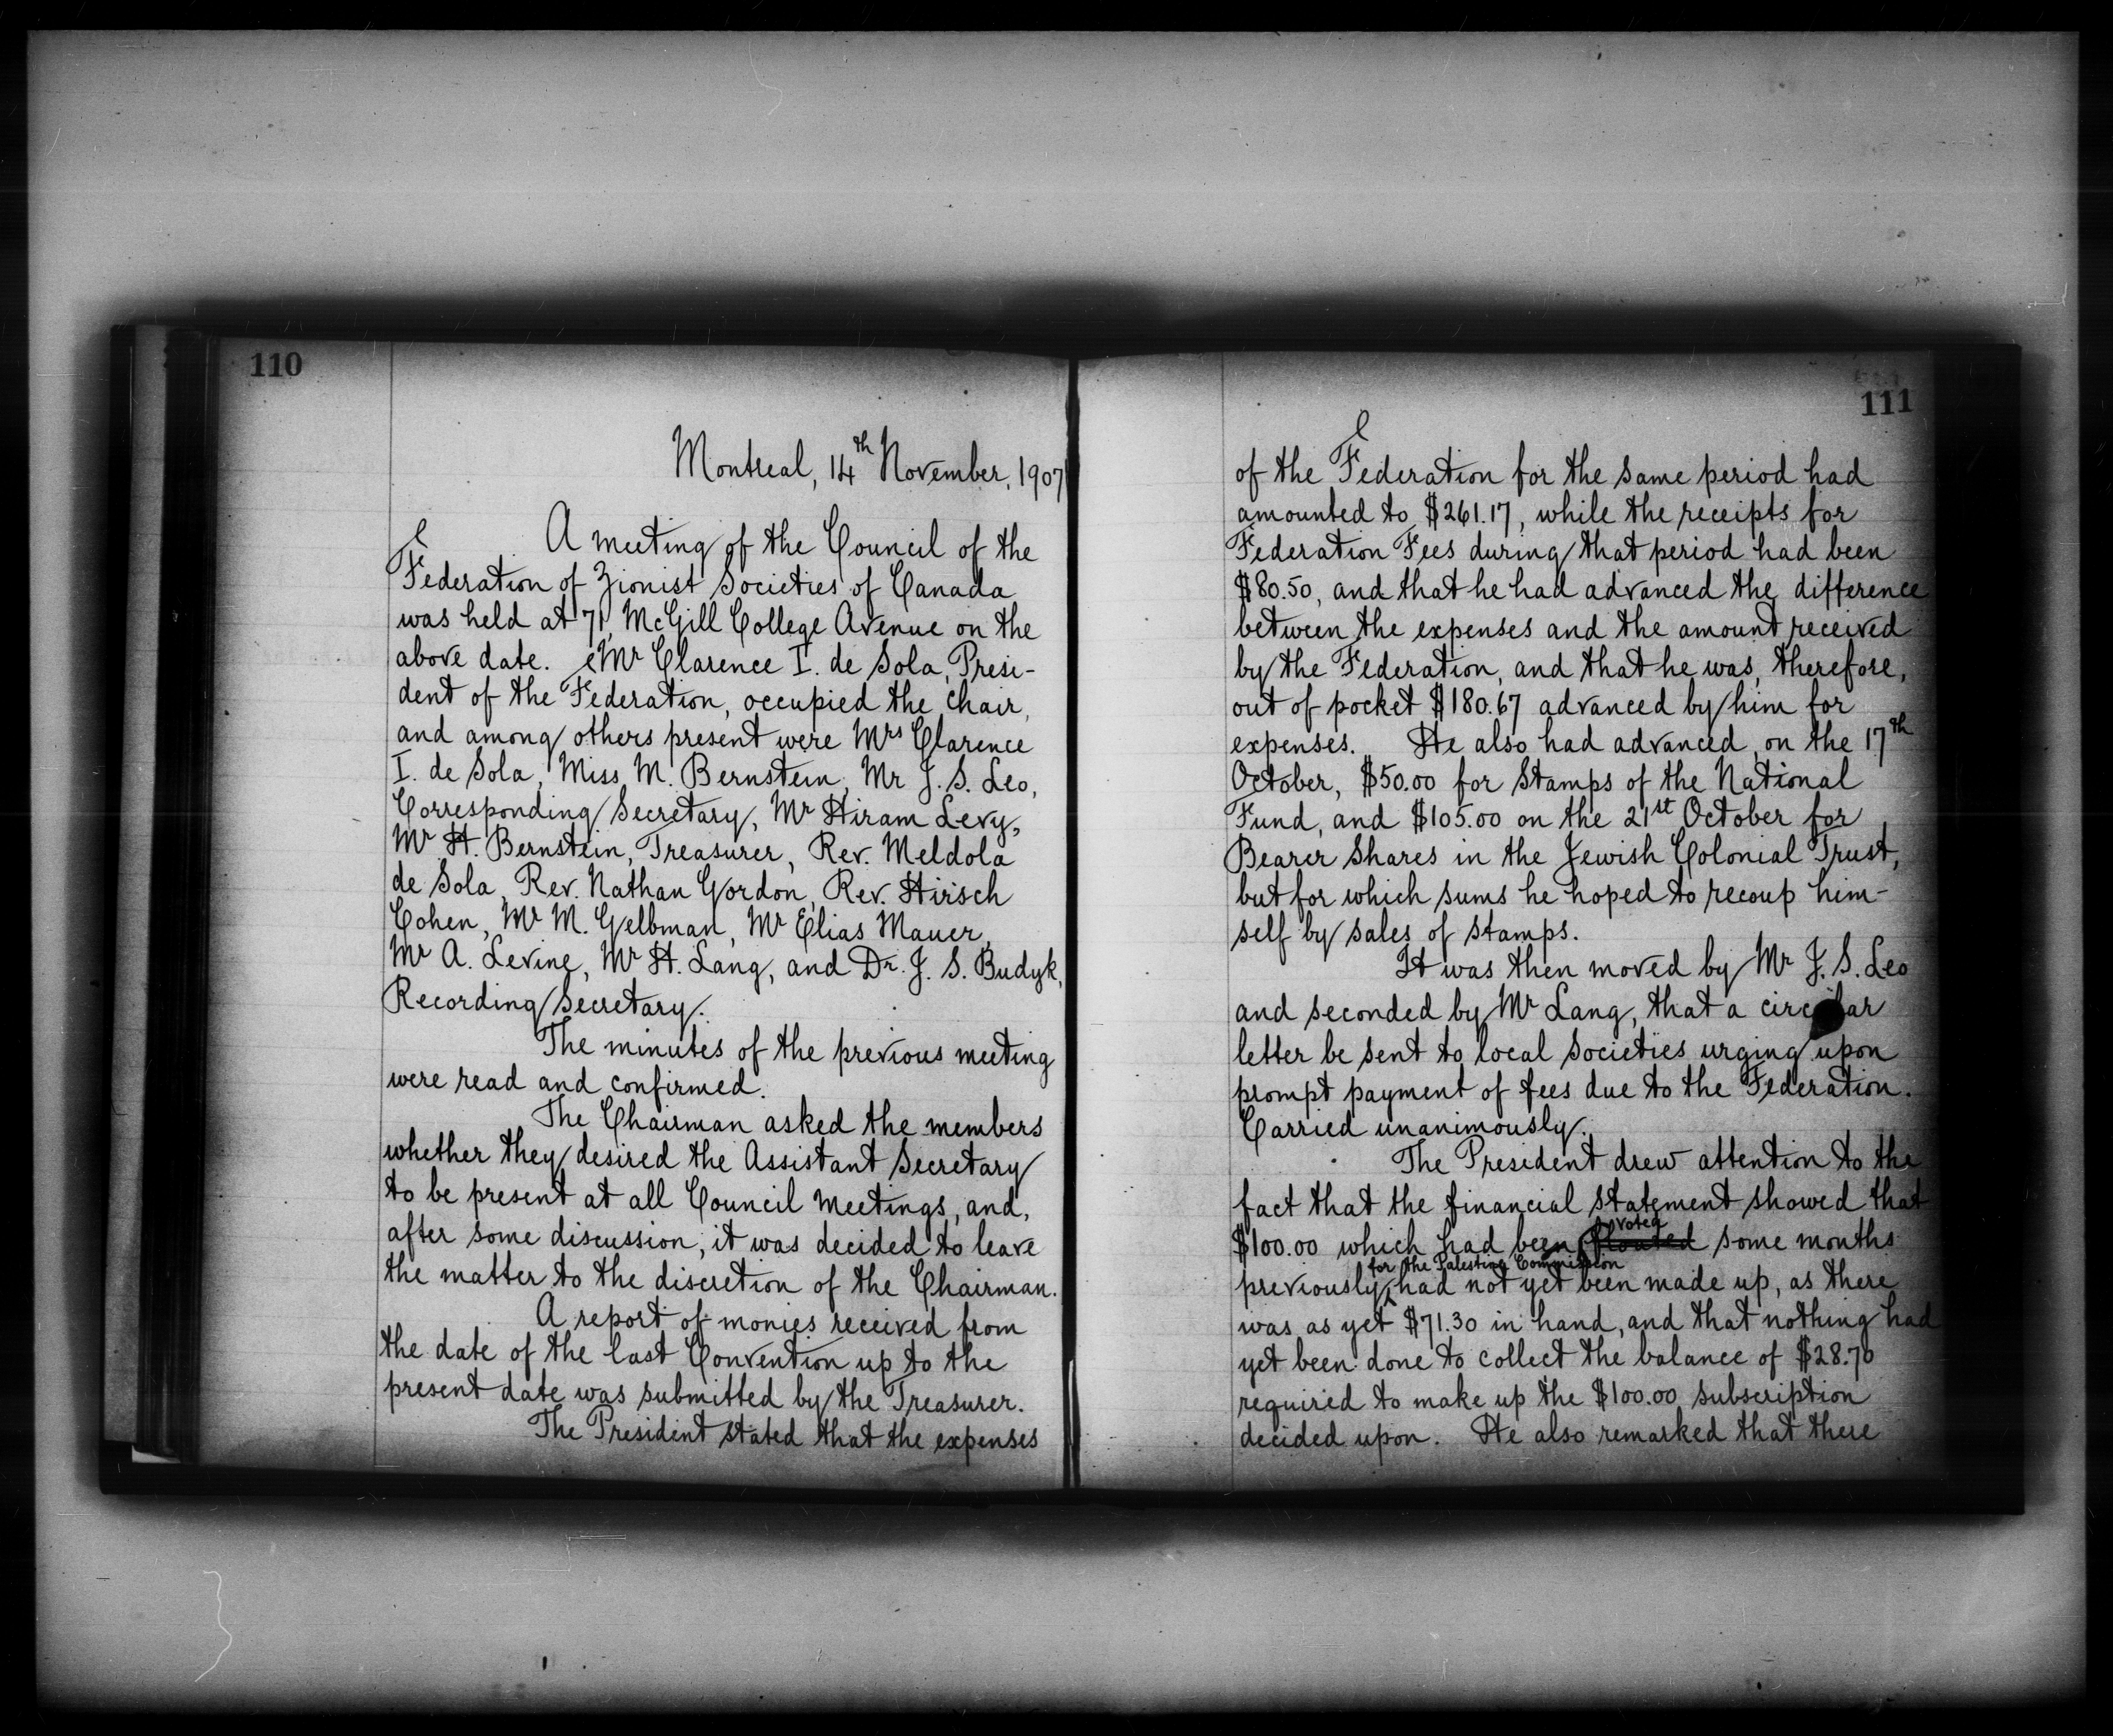 110
Montreal, 14th November, 1907
A meeting of the Council of the
Federation of Zionist Societies of Canada
was held at 71, McGill College Avenue on the
above date. Mr Clarence I. de Sola, Presi-
dent of the Federation, occupied the chair,
and among others present were Mrs Clarence
I. de Sola, Miss M. Bernstein, Mr J. S. Leo,
Corresponding Secretary, Mr Hiram Levy,
Mr H. Bernstein, Treasurer, Rev. Meldola
de Sola, Rev. Nathan Gordon, Rev. Hirsch
Cohen, Mr M. Gelbman, Mr Elias Mauer,
Mr A. Levine, Mr H. Lang, and Dr. J. S. Budyk,
Recording Secretary.
The minutes of the previous meeting
were read and confirmed.
The Chairman asked the members
whether they desired the Assistant Secretary
to be present at all Council meetings, and,
after some discussion, it was decided to leave
the matter to the discretion of the Chairman.
A report of monies received from
the date of the last Convention up to the
present date was submitted by the Treasurer.
The President stated that the expenses
111
of the Federation for the same period had
amounted to $261.17, while the receipts for
Federation Fees during that period had been
$80.50, and that he had advanced the difference
between the expenses and the amount received
by the Federation, and that he was, therefore,
out of pocket $180.67 advanced by him for
expenses. He also had advanced on the 17th
October, $50.00 for Stamps of the National
Fund, and $105.00 on the 21st October for
Bearer Shares in the Jewish Colonial Trust,
but for which sums he hoped to recoup him-
self by sales of stamps.
It was then moved by Mr J. S. Leo
and seconded by Mr Lang, that a circular
letter be sent to local Societies urging upon
prompt payment of fees due to the Federation.
Carried unanimously.
The President drew attention to the
fact that the financial statement showed that
voted
$100.00 which had been some months
for the Palestine Commission
previously had not yet been made up, as there
was as yet $71.30 in hand, and that nothing had
yet been done to collect the balance of $28.70
required to make up the $100.00 subscription
decided upon. He also remarked that there